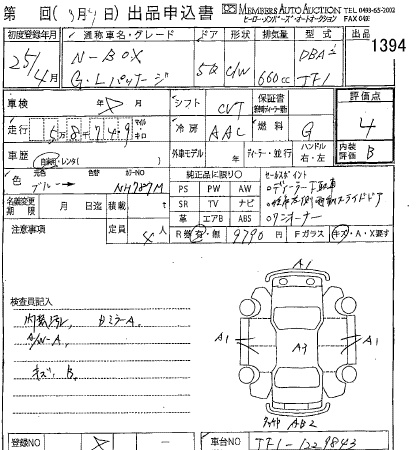 第 回(3月 日)出品申込書 MEMBERS AUTO AUCTION TEL 0493-65-2002
ヒーロー・メンバーズ・オートオークション FAX 0493
初度登録年月 通称車名・グレード ドア 形状 排気量 型式 出品 1394
25/4月 N-BOX 5D C/W 660cc DBA- JF1
G・Lパッケージ
車検 年 月 シフト CVT 保証書 評価点
走行 5万8749 マイル キロ 冷房 AAC 燃料 G 4
車歴 自家用・レンタ( ) 外車モデル 年 ディーラー・並行 ハンドル 右・左 内装評価 B
色 元色 ブルー 色替 カラーNO NH787M 純正品に限り○ セールスポイント
PS PW AW ・ディーラー下取車
名義変更期限 月 日迄 積載 t SR TV ナビ
革 エアB ABS ・ワンオーナー
注意事項 定員 4人 R券 有・無 9790円 Fガラス キズ・A・X要す
検査員記入
内装汚れ
キズ、B
A1
A1 A3 A1
AB2
登録NO 車台NO JF1-1229843